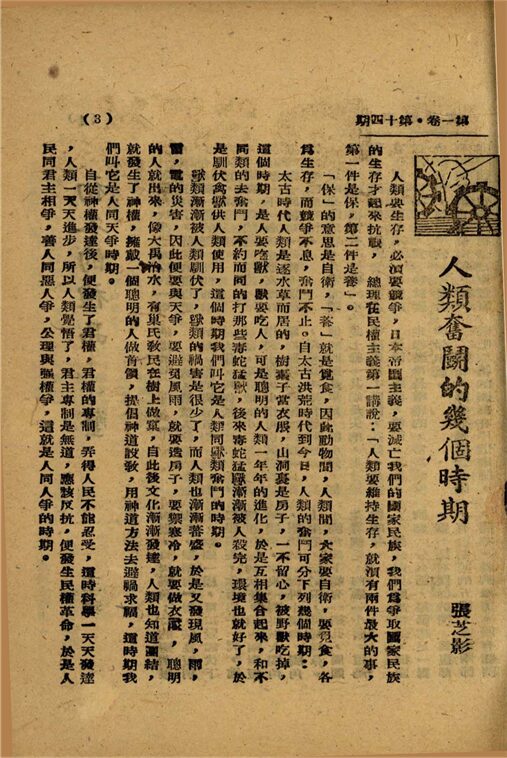 第一卷・第十四期
(3)
人類奮鬭的幾個時期
張芝影
人類要生存，必須要競爭，日本帝國主義，要滅亡我們的國家民族，我們爲爭取國家民族
的生存才起來抗戰，　總理在民權主義第一講說：「人類要維持生存，就須有兩件最大的事，
第一件是保，第二件是養」。
「保」的意思是自衛，「養」就是覓食，因此動物間，人類間，大家要自衛，要覓食，各
爲生存，而競爭不息，奮鬥不止。自太古洪荒時代到今日，人類的奮鬥可分下列幾個時期：
太古時代人類是逐水草而居的，樹葉子當衣服，山洞裏是房子，一不留心，被野獸吃掉，
這個時期，是人要吃獸，獸要吃人，可是聰明的人類一年年的進化，於是互相集合起來，和不
同類的去奮鬥，不約而同的打那些毒蛇猛獸，後來毒蛇猛獸漸漸被人殺完，環境也就好了，於
是馴伏禽獸供人類使用，這個時期我們叫它是人類同獸類奮鬥的時期。
獸類漸漸被人類馴伏了，獸類的禍害是很少了，而人類也漸漸蕃盛，於是又發現風，雨，
雷，電的災害，因此便要與天爭，要避風雨，就要造房子，要禦寒冷，就要做衣服，聰明
的人就出來，像大禹治水，有巢氏敎民在樹上做窠，自此後文化漸漸發達，人類也知道團結，
就發生了神權，擁戴一個聰明的人做首領，提倡神道設敎，用神道方法去避禍求福，這時期我
們叫它是人同天爭時期。
自從神權發達後，便發生了君權，君權的專制，弄得人民不能忍受，這時科學一天天發達
，人類一天天進步，所以人類覺悟了，君主專制是無道，應該反抗，便發生民權革命，於是人
民同君主相爭，善人同惡人爭，公理與强權爭，這就是人同人爭的時期。